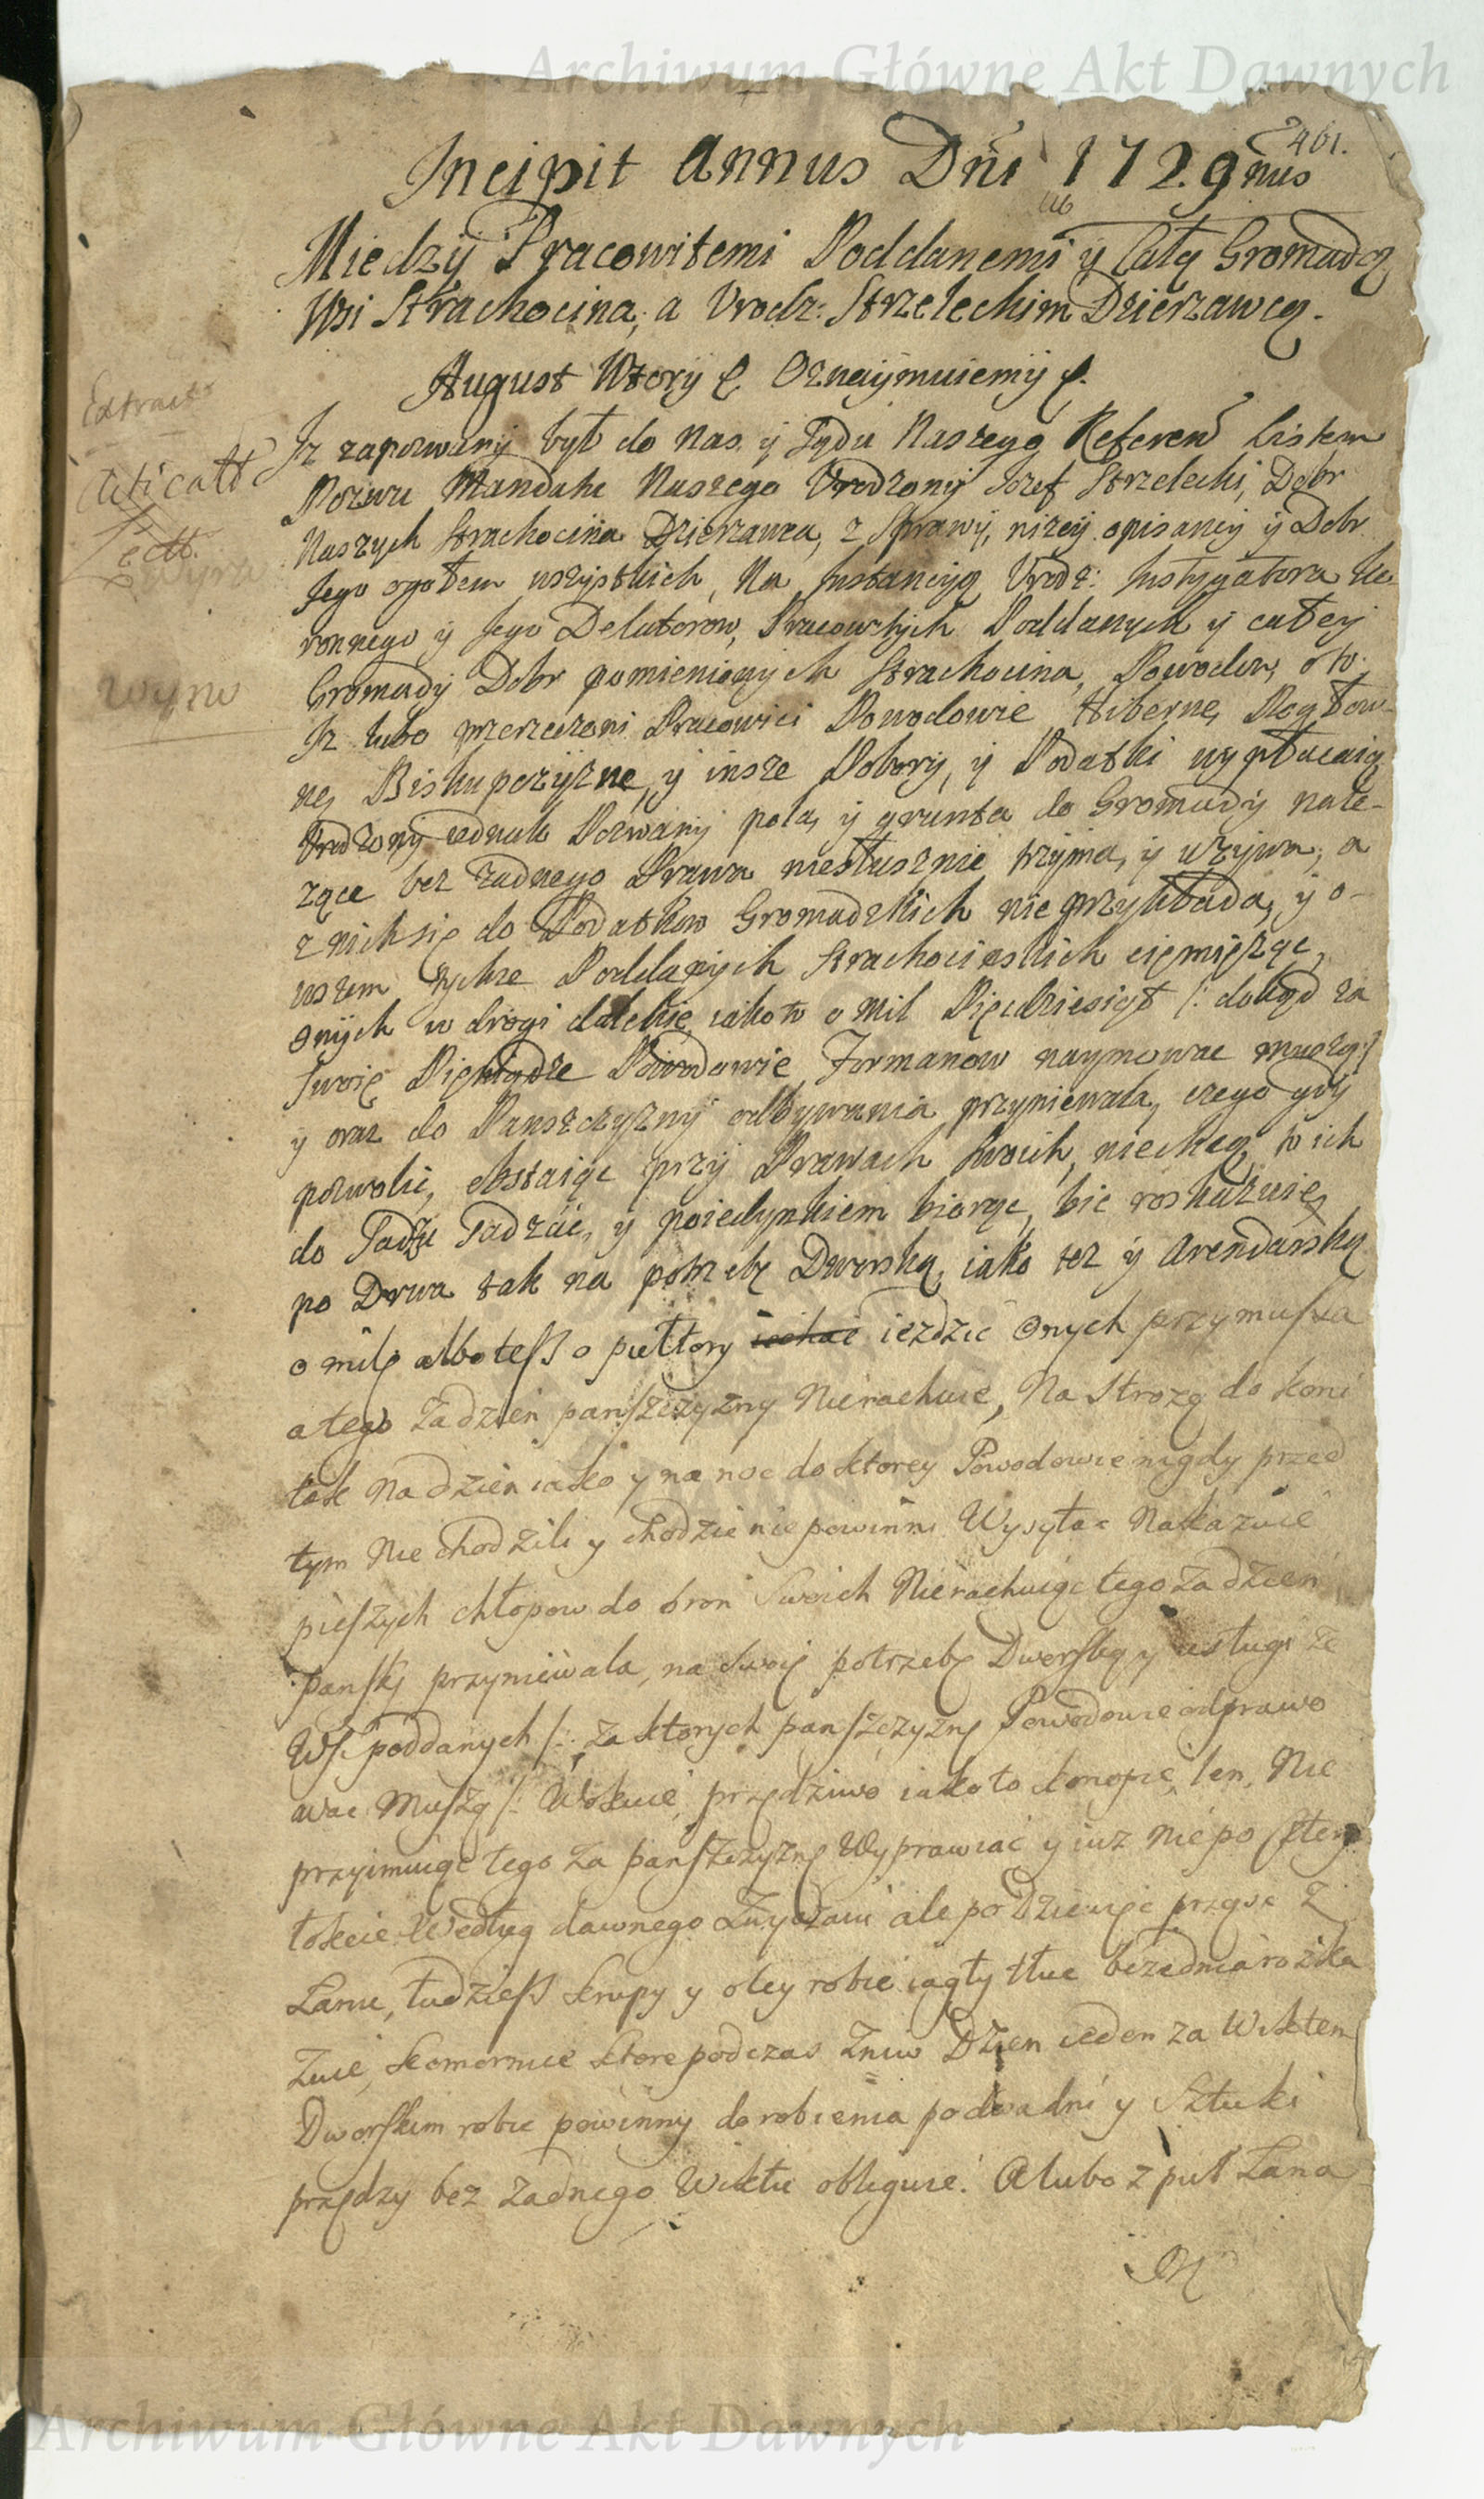 Archiwum Główne Akt Dawnych
461.
Incipit Annus Dni 1729nus
Miedzÿ Pracowitemi Poddanemi ÿ Całą Gromadą
Wsi Strachocina, a Urodz: Strzeleckim Dzierzawcą.
August Wtorÿ Oznaÿmuiemÿ
Extract
Iz zapozwanÿ był do nas ÿ Sądu Naszego Referen Listem
Pozwu Mandatu Naszego Urodzonÿ Jozef Strzelecki, Dobr
Naszych Strachocina Dzierzawca, z Sprawÿ, nizeÿ opisaneÿ ÿ Dobr
Jego ogołem wszÿstkich, Na Instancÿą Urodz: Instÿgatora Ko-
ronnego ÿ Jego Delatorow, Pracowitÿch Poddanych ÿ całeÿ
Gromadÿ Dobr pomienionÿch Strachocina, Powodow, o to.
Iz lubo przerzeczeni Pracowici Powodowie Hibernę, Pogłow-
ne, Biskupczÿznę, ÿ insze Poborÿ, ÿ Podatki wÿpłacaią
Urodzonÿ iednak Pozwanÿ pola, ÿ grunta do Gromadÿ nale-
zące bez zadnego Prawa niesłusznie trzÿma, ÿ uzÿwa, a
z nich się do Podatkow Gromadzkich nie przÿkłada, ÿ o-
wszem tÿchze Poddanÿch Strachocinskich ciemięząc,
onÿch w drogi dalekie, iako to o mil Pięcdziesiąt /: dokąd za
swoie Pieniądze Powodowie Formanow naymowac muszą :/
ÿ oraz do Panszczÿznÿ odbÿwania przÿniewala, czego gdÿ
pozwolic, obstaiąc przÿ Prawach swoich, niechcą, to ich
do Sadzu Sadzać, ÿ poiedynkiem biorąc, bic roskazuie,
po Drwa tak na potrzebę Dworską, iako tez ÿ Arendarską
o milę albo tesz o pułtory iechac iezdzic onych przymusza
a tego za dzien panszczyzny nierachuie, Na Strozą do koni
tak na dzien iako y na noc do ktorey Powodowie nigdy przed
tym nie chodzili y chodzic nie powinni Wysyłac nakazuie
pieszych chłopow do bron swoich nierachuiąc tego za dzien
panski przyniewala, na swoię potrzebę Dworską y usługi ze
Wsi poddanych /: za ktorych panszczyznę Powodowie odprawo
wac muszą /: przędziwo iako to konopie, len, Nie
przyimuiąc tego za panszczyznę Wyprawiac y iuz nie po
łokcie Według dawnego Zwyczaiu ale po Dziewięc prząsc z
Łanu, tudziesz krupy y oley robic iagły tłuc beze dnia roska
zuie, komornice ktore podczas Zniw Dzien ieden za Wiktem
Dworskim robic powinny do robienia po dwa dni y Sztuki
przędzy bez zadnego Wiktu obliguie. A lubo z puł Łana
Archiwum Główne Akt Dawnych